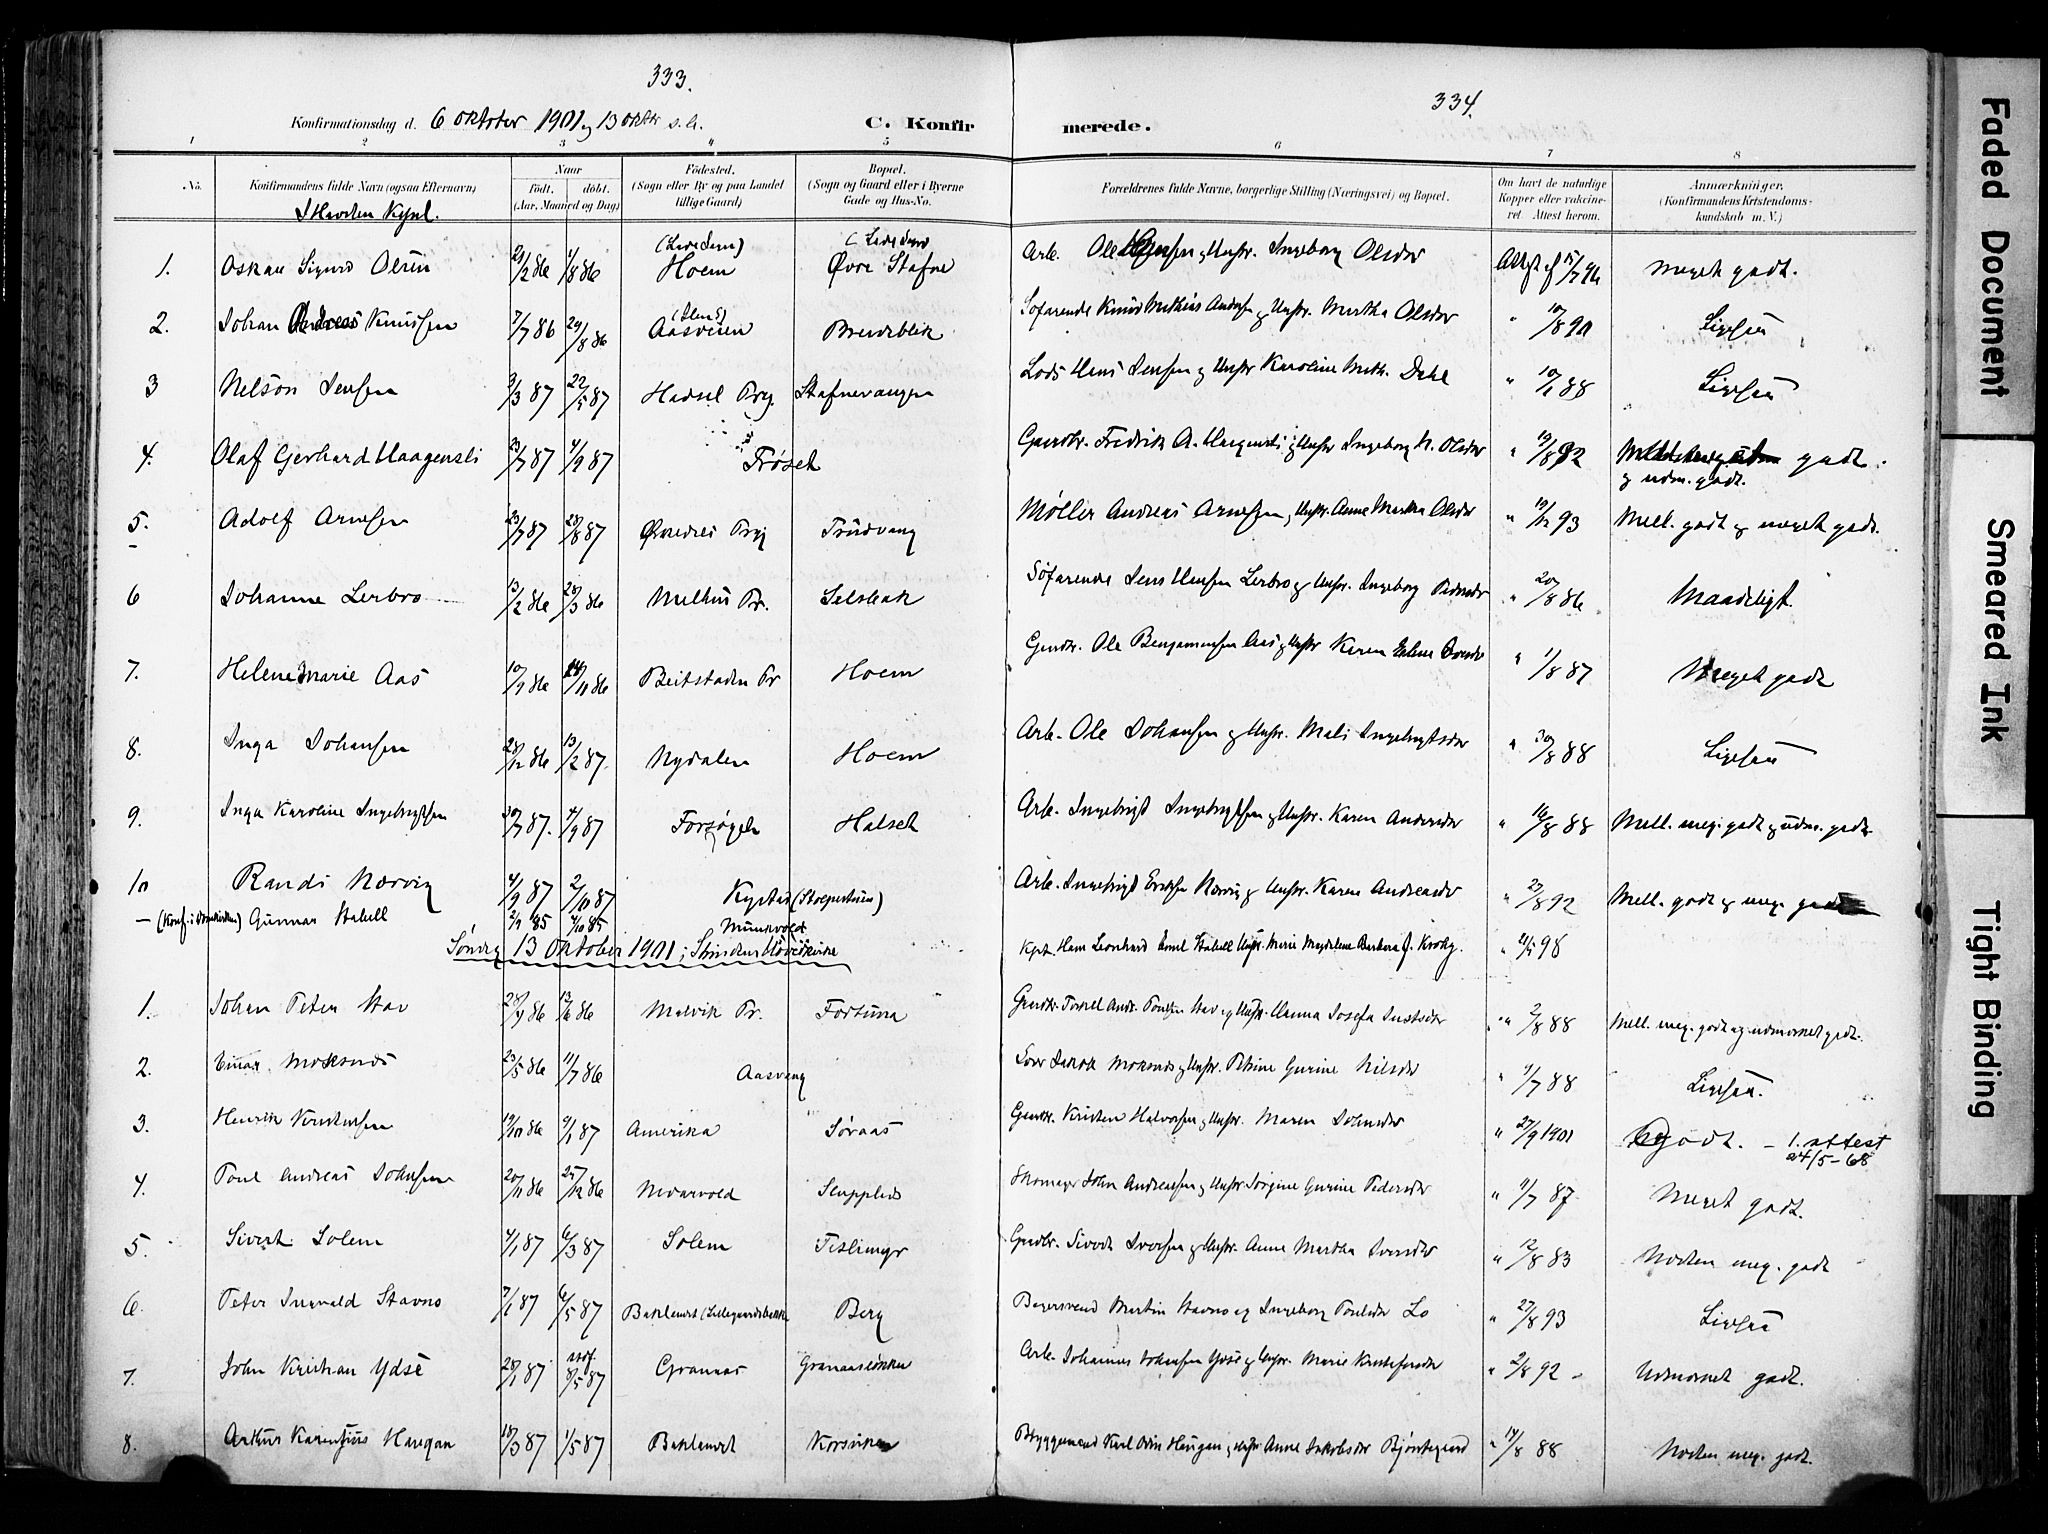 333.
334.
Konfirmationsdag d. 6 oktober 1901 og 13 oktbr s. a.
C. Konfirmerede.
1 2 3 4 5 6 7 8
No.
Konfirmandens fulde Navn (ogsaa Efternavn)
Naar
født. døbt.
(Aar, Maaned og Dag)
Fødested.
(Sogn eller By og paa Landet
tillige Gaard)
Bopæl.
(Sogn og Gaard eller i Byerne
Gade og Hus-No.
Forældrenes fulde Navne, borgerlige Stilling (Næringsvei) og Bopæl.
Om havt de naturlige
Kopper eller vakcine-
ret. Attest herom.
Anmærkninger.
(Konfirmandens Kristendoms-
kundskab m. V.)
1. Oskar Sigurd Olsen 2/86 1/8 86 Hoem Øvre Stafne Arb. Ole Hansen og Hustr. Ingeborg Olsdtr Attest af 96 meget godt.
2. Johan Andreas Knudsen 7/7 86 29/8 86 Aasveien Bredeblik Søfarende Knud Mathias Andersen og Hustr. Martha Olsdtr " Ligesaa
3 Nelson Jensen 3/3 87 22/5 87 Hadsel Prg. Stafnevangen Lods Hans Jensen og Hustr Karoline Math. Dahl " 88 Ligesaa
4. Olaf Gerhard Haagensli 23/7 87 4/9 87 Frøset Gaardbr. Fredrik A. Haagensli og Hustr Ingeborg N. Olsdtr " 19/8 92 godt.
og udm. godt.
5. Adolf Arnesen 23/7 87 28/8 87 Ørkedal Prg Trudvang Møller Andreas Arnesen og Hustr. Anne Martha Olsdtr " 19/12 93 Mell. godt og meget godt.
6 Johanne Lerbro 13/2 86 28/3 86 Melhus Pr. Selsbak Søfarende Jens Hansen Lerbro og Hustr. Ingeborg Pedersdtr " 20/8 86 Maadeligt.
7. Helene Marie Aas 10/9 86 14/11 86 Beitstaden Pr Hoem Gaardbr. Ole Benjaminsen Aas og Hustr Karen " 1/8 87 Meget godt
8. Inga Johansen 28/12 86 13/2 87. Nydalen Hoem Arb. Ole Johansen og Hustr. Mali Ingebrigtsdtr " 30/8 88 Ligesaa
9. Inga Karoline Ingebrigtsen 30/7 87. 4/9 87 Forsøget Halset Arb. Ingebrigt Ingebrigtsen og Hustr. Karen Andersdtr " 16/8 88 Mell. meg. godt og udm. godt.
10 Randi Narvig 4/9 87 2/10 87 Kystad Arb. Ingebrigt Eriksen Narvig og Hustr. Karen Andreasdtr " 23/8 92 Mell. godt og meg. godt
— (Konf. i Domkirken) Gunnar Stabell 2/9 85 4/10 85 Munkvold Kpt. Hans Leonhard Emil Stabell Hustr. Marie Magdalene Barbara f. Krohg. " 98
Søndag 13 oktober 1901 i Strinden Hovedkirke
1. Johan Peter Hav 28/9 86 86 Malvik Pr. Fortuna Gaardbr. Andr. Poulsen Hav og Hustr. Hanna Josefa Justsdtr " 2/8 88 Mell. meg. godt og udmærket godt.
2. Einar Moksnes 23/5 86 11/7 86 Aasvang Jakob Moksnes og Hustr. Petrine Gurine Nilsdtr " 1/7 88 Ligesaa.
3. Henrik Kristensen 19/10 86 9/1 87 Amerika Søraas Gaardbr. Kristen Halvorsen og Hustr. Maren Johnsdtr " 27/9 1901 Godt. — 1. attest
24/5-68
4. Poul Andreas Johnsen 20/11 86 25/12 86 Moarvold Sluppleds Skomager John Andreassen og Hustr Jørgine Gurine Pedersdtr " 1/7 87 Meget godt.
5. Sivert Solem 4/1 87 6/3 87 Solem Teslimyr Gaardbr. Sivert Iversen og Hustr. Anne Martha Iversdtr " 12/8 83 Næsten meg. godt
6. Peter Ingvald Stavno 7/1 87 6/5 87 Baklandet (Lillegaardsbakke) Berg Bagersvend Martin Stavno og Ingeborg Poulsdtr Lo " 27/8 93 Ligesaa
7. John Kristian Ydsé 28/1 87 8/5 87 Granaas Granaasløkken Arb. Johannes Johansen Ydsé og Hustr. Marie Kristofersdtr " 2/8 92 - Udmærket godt.
8. Arthur Haugan 18/3 87 1/5 87 Baklandet Korsviken Bryggemand Karl Odin Haugan og Hustr Anne Jakobsdtr Bjørtegaard " 14/8 88 Næsten meg. godt.
Faded Document
Smeared Ink
Tight Binding